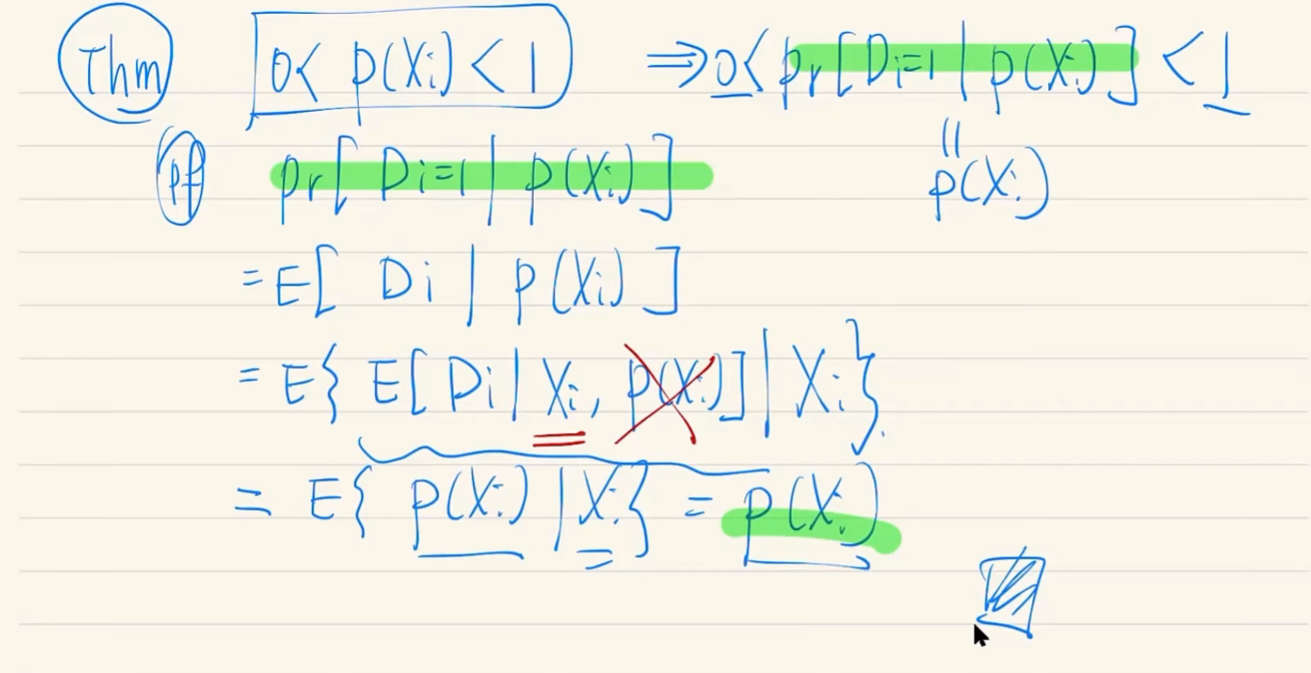 Thm 0 < p(Xi) < 1 ⇒ 0 < pr[Di=1 | p(Xi)] < 1
pf pr[Di=1 | p(Xi)] || p(Xi)
= E[Di | p(Xi)]
= E{ E[Di | Xi, p(Xi)] | Xi }.
= E{ p(Xi) | Xi } = p(Xi)